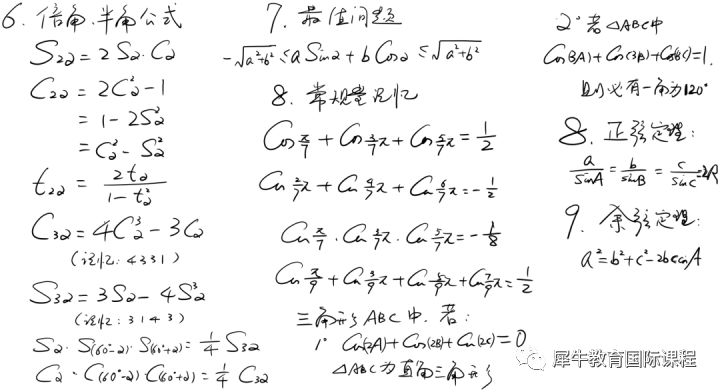 6. 倍角.半角公式
S2α = 2Sα·Cα
C2α = 2C²α - 1
= 1 - 2S²α
= C²α - S²α
t2α = 2tα / 1 - t²α
C3α = 4C³α - 3Cα
(记忆: 4331)
S3α = 3Sα - 4S³α
(记忆: 3143)
Sα·S(60°-α)·S(60°+α) = 1/4 S3α
Cα·C(60°-α)·C(60°+α) = 1/4 C3α
7. 最值问题
-√a²+b² ≤ a Sinα + b Cosα ≤ √a²+b²
8. 常规量记忆
Cos π/7 + Cos 3/7π + Cos 5/7π = 1/2
Cos 2/7π + Cos 4/7π + Cos 6/7π = -1/2
Cos π/7 · Cos 3/7π · Cos 5/7π = -1/8
Cos π/9 + Cos 3/9π + Cos 5/9π + Cos 7/9π = 1/2
三角形ABC中. 若:
1° Cos(2A) + Cos(2B) + Cos(2C) = 0
△ABC为直角三角形
2° 若△ABC中
Cos(3A) + Cos(3B) + Cos(3C) = 1.
则必有一角为120°
8. 正弦定理:
a/sinA = b/sinB = c/sinC = 2R
9. 余弦定理:
a² = b² + c² - 2bc cosA
犀牛教育国际课程